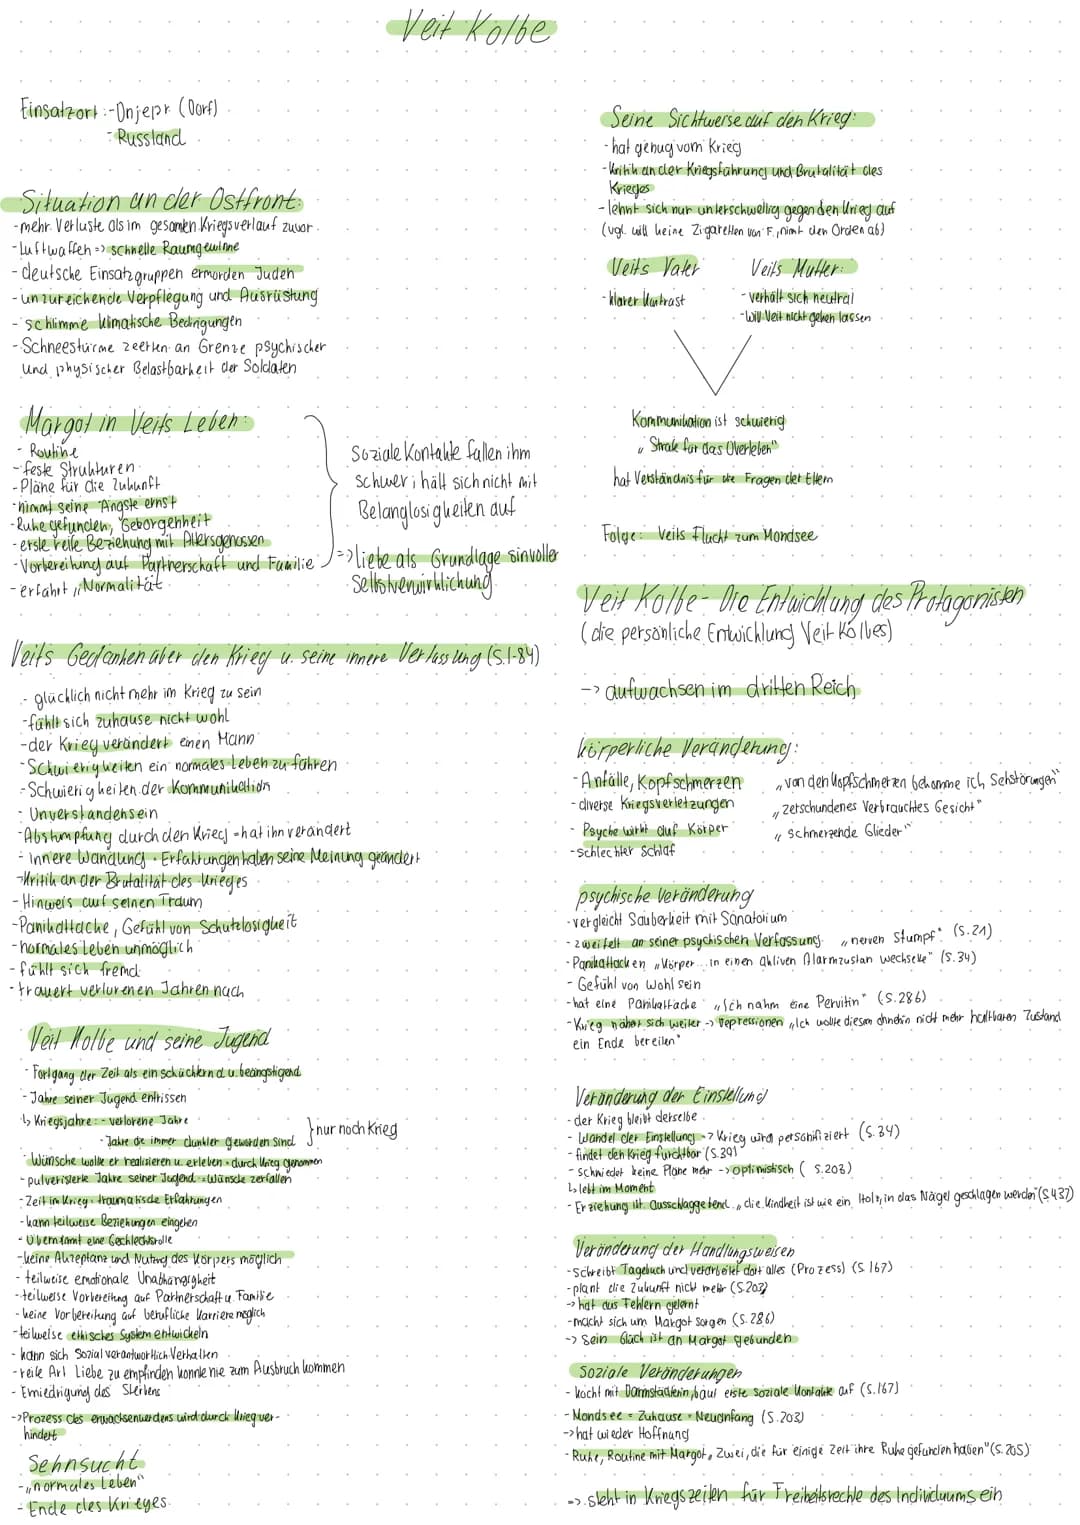 Veit Kolbe
Einsatzort: - Dnjepr (Dorf)
- Russland
Situation an der Ostfront:
- mehr Verluste als im gesamten Kriegsverlauf zuvor
- Luftwaffen => schnelle Raumgewinne
- deutsche Einsatzgruppen ermorden Juden
- unzureichende Verpflegung und Ausrüstung
- schlimme klimatische Bedingungen
- Schneestürme zeerten an Grenze psychischer
und physischer Belastbarkeit der Soldaten
Margot in Veits Leben:
- Routine
- feste Strukturen
- Pläne für die Zukunft
- nimmt seine Ängste ernst
- Ruhe gefunden, Geborgenheit
- erste reife Beziehung mit Altersgenossen
- Vorbereitung auf Partnerschaft und Familie
- erfährt „Normalität
Soziale Kontakte fallen ihm
schwer; hält sich nicht mit
Belanglosigkeiten auf
=> Liebe als Grundlage sinvoller
Selbstverwirklichung
Veits Gedanken über den Krieg u. seine innere Verfassung (S.1-84)
- glücklich nicht mehr im Krieg zu sein
- fühlt sich zuhause nicht wohl
- der Krieg verändert einen Mann
- Schwierigkeiten ein normales Leben zu führen
- Schwierigkeiten der Kommunikation
- Unverstandensein
- Abstumpfung durch den Krieg = hat ihn verändert
- innere Wandlung = Erfahrungen haben seine Meinung geändert
- Kritik an der Brutalität des Krieges
- Hinweis auf seinen Traum
- Panikattacke, Gefühl von Schutzlosigkeit
- normales Leben unmöglich
- fühlt sich fremd
- trauert verlorenen Jahren nach
Veit Kolbe und seine Jugend
- Fortgang der Zeit als einschüchternd u. beängstigend
- Jahre seiner Jugend entrissen
↳ Kriegsjahre: - verlorene Jahre
- Jahre die immer dunkler geworden sind
} nur noch Krieg
- Wünsche wollte er realisieren u. erleben = durch Krieg genommen
- pulverisierte Jahre seiner Jugend = Wünsche zerfallen
- Zeit im Krieg = traumatische Erfahrungen
- kann teilweise Beziehungen eingehen
- Übernimmt eine Gechlechtsrolle
- keine Akzeptanz und Nutzung des Körpers möglich
- teilweise emotionale Unabhängigkeit
- teilweise Vorbereitung auf Partnerschaft u. Familie
- keine Vorbereitung auf berufliche Karriere möglich
- teilweise ethisches System entwickeln
- kann sich Sozial verantwortlich Verhalten
- reife Art Liebe zu empfinden konnte nie zum Ausbruch kommen
- Erniedrigung des Sterbens
-> Prozess des erwachsenwerdens wird durch Krieg ver-
hindert
Sehnsucht
- „normales Leben"
- Ende des Krieges
Seine Sichtweise auf den Krieg:
- hat genug vom Krieg
- Kritik an der Kriegsführung und Brutalität des
Krieges
- lehnt sich nur unterschwellig gegen den Krieg auf
(vgl. will keine Zigaretten von F., nimt den Orden ab)
Veits Vater
- klarer Kontrast
Veits Mutter:
- verhält sich neutral
- will Veit nicht gehen lassen
Kommunikation ist schwierig
„Strafe für das Überleben"
hat Verständnis für die Fragen der Eltern
Folge: Veits Flucht zum Mondsee
Veit Kolbe - Die Entwicklung des Protagonisten
(die persönliche Entwicklung Veit Kolbes)
-> aufwachsen im dritten Reich
körperliche Veränderung:
- Anfälle, Kopfschmerzen „von den Kopfschmerzen bekomme ich Sehstörungen"
- diverse Kriegsverletzungen „zerschundenes Verbrauchtes Gesicht"
- Psyche wirkt auf Körper „schmerzende Glieder"
- schlechter Schlaf
psychische Veränderung
- vergleicht Sauberkeit mit Sanatorium
- zweifelt an seiner psychischen Verfassung „nerven Stumpf" (S.21)
- Panikattacken „Körper... in einen aktiven Alarmzustan wechselte" (S.34)
- Gefühl von Wohlsein
- hat eine Panikattacke „Ich nahm eine Pervitin" (S.286)
- Krieg näher sich weiter -> Depressionen „Ich wollte diesem ohnehin nicht mehr haltbaren Zustand
ein Ende bereiten"
Veränderung der Einstellung
- der Krieg bleibt derselbe
- Wandel der Einstellung -> Krieg wird personifiziert (S.34)
- findet den Krieg furchtbar (S.39)
- schmiedet keine Pläne mehr -> optimistisch (S.203)
↳ lebt im Moment
- Erziehung ist ausschlaggebend „die Kindheit ist wie ein Holz, in das Nägel geschlagen werden" (S.437)
Veränderung der Handlungsweisen
- schreibt Tagebuch und verarbeitet dort alles (Prozess) (S.167)
- plant die Zukunft nicht mehr (S.203)
-> hat aus Fehlern gelernt
- macht sich um Margot sorgen (S.286)
-> Sein Glück ist an Margot gebunden
Soziale Veränderungen
- kocht mit Darmstädterin, baut erste soziale Kontakte auf (S.167)
- Mondsee = Zuhause = Neuanfang (S.203)
-> hat wieder Hoffnung
- Ruhe, Routine mit Margot „Zwei, die für einige Zeit ihre Ruhe gefunden haben" (S.205)
=> steht in Kriegszeiten für Freiheitsrechte des Individuums ein